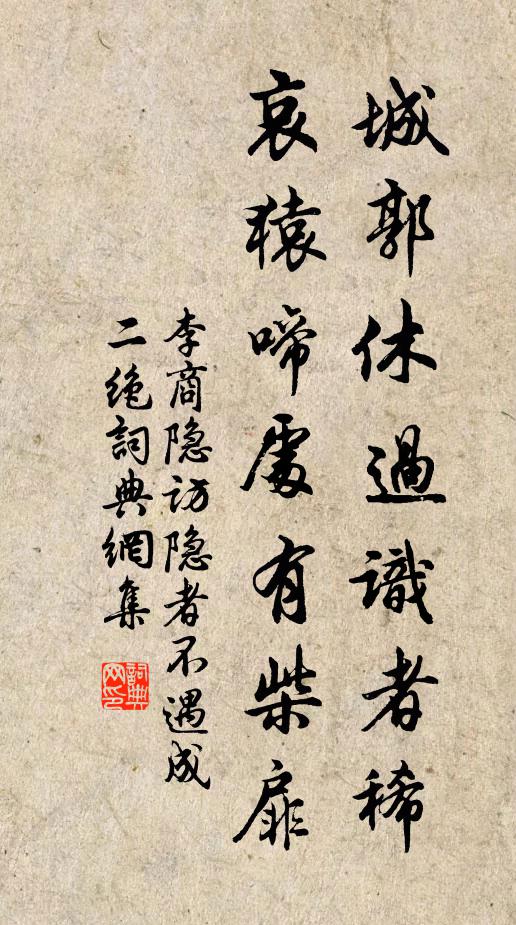 城郭休過識者稀
哀猿啼處有柴扉
李商隐访隐者不遇成
二绝詞典網集
詞典网印